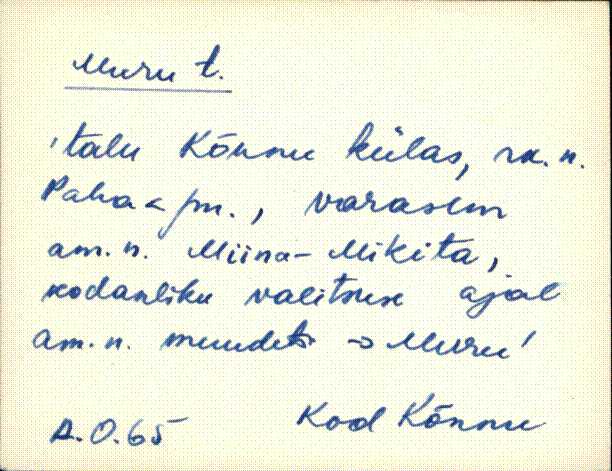 Muru t.
'talu Kõnnu külas, rx. n.
Paha < pn., varasem
am. n. Miina-Mikita,
kodanliku valitsuse ajal
am. n. muudeti → Muru'
A.O.65 Kod Kõnnu